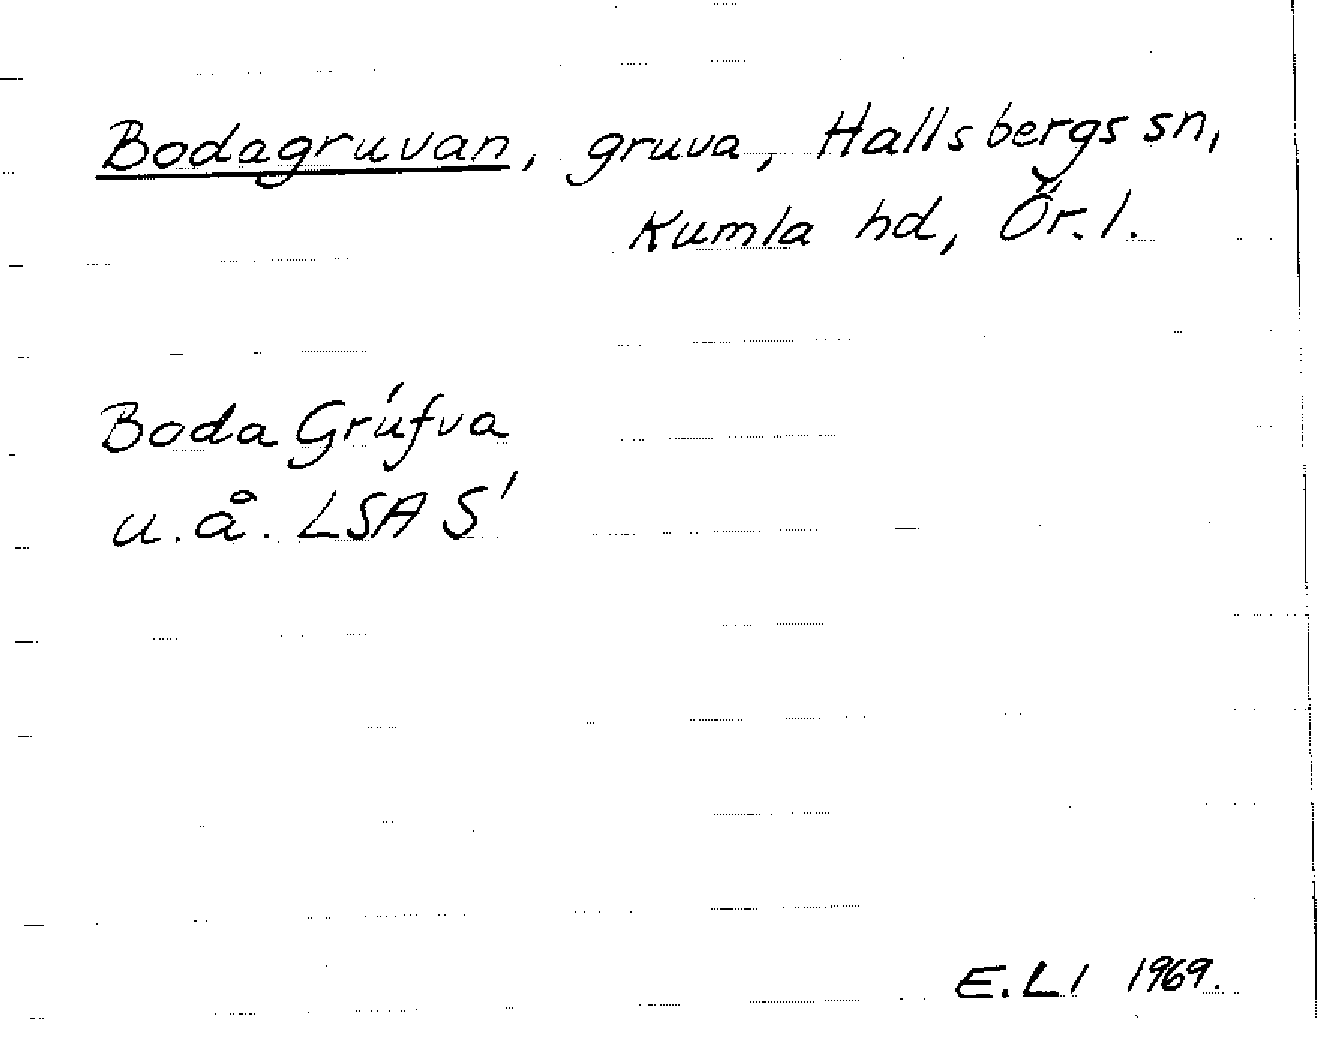 Bodagruvan, gruva, Hallsbergs sn,
Kumla hd, Ör. l.
Boda Grúfva
u. å. LSA S'
E. L! 1969.